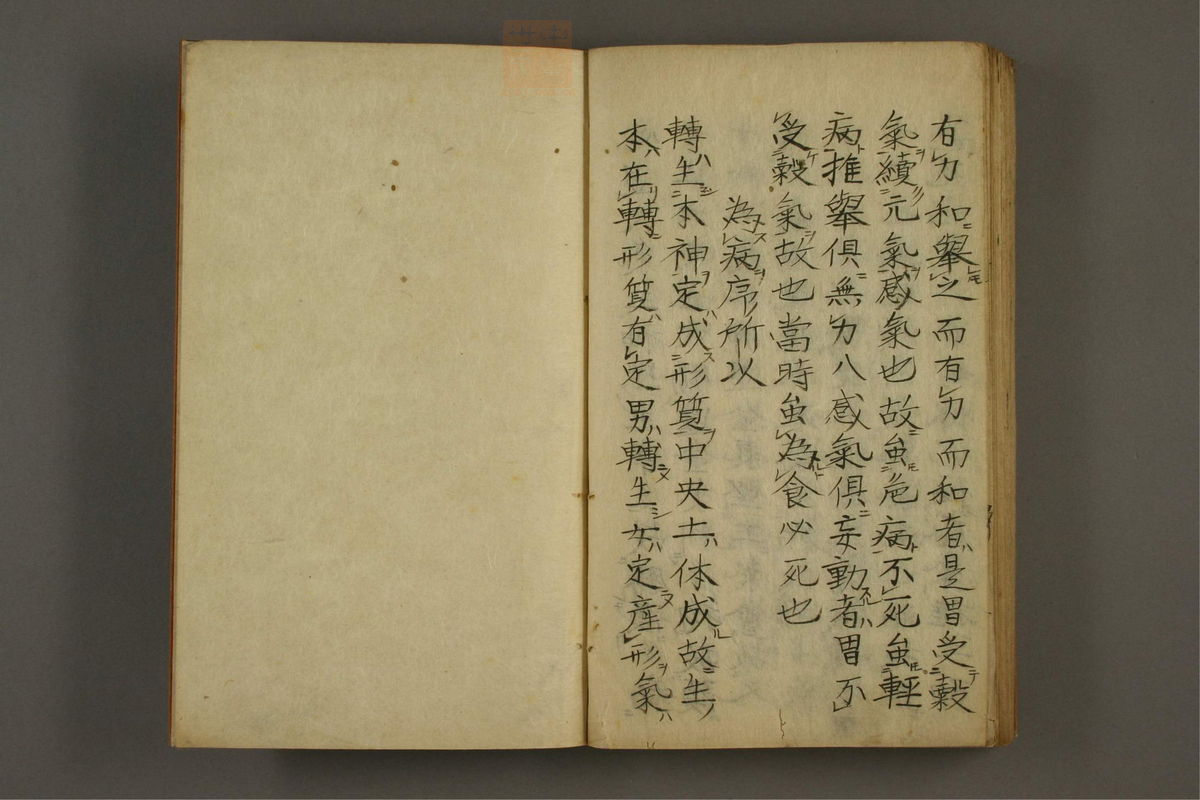 有力和舉之而有力而和者是胃受穀
氣續元氣感氣也故虽危病不死虽輕
病推舉俱無力八感氣俱妄動者胃不
受穀氣故也當時虽為食必死也
為病序所以
轉生本神定成形質中央土体成故生
本在轉形質有定男轉生女定産形氣